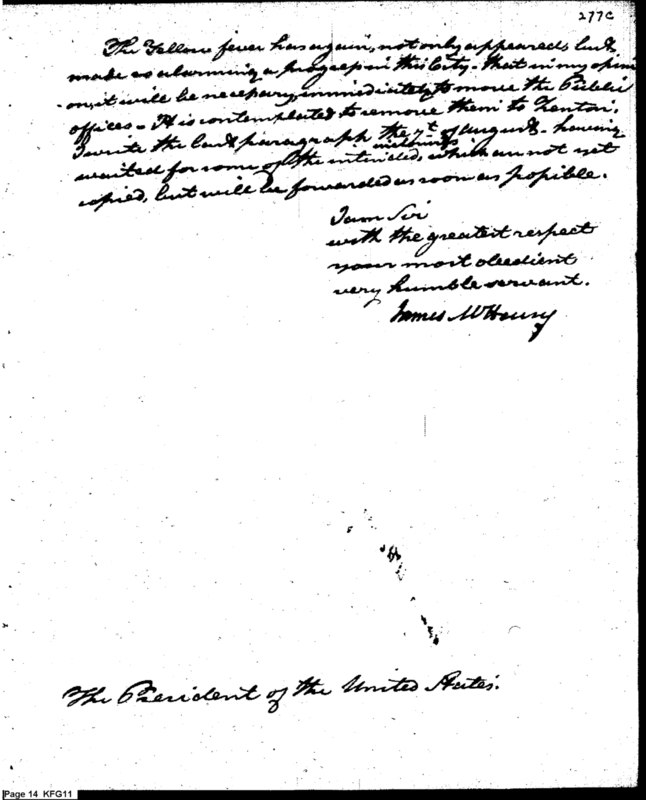 277C
The Yellow fever has again, not only appeared, but
made so alarming a progress in this City - that in my opini
-on, it will be necessary, immediately to move the Public
offices - It is contemplated to remove them to Trenton.
I write the last paragraph the 7th of August - having
inclosures
waited for some of the intended, which are not yet
copied, but will be forwarded as soon as possible.
I am Sir
with the greatest respect
your most obedient
very humble servant.
James McHenry
The President of the United States.
Page 14 KFG11